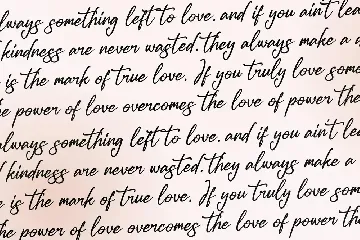 lways something left to love. and if you ain't lea
kindness are never wasted. they always make a d
is the mark of true love. If you truly love some
he power of love overcomes the love of power the
always something left to love. and if you ain't le
kindness are never wasted. they always make a
e is the mark of true love. If you truly love som
he power of love overcomes the love of power th